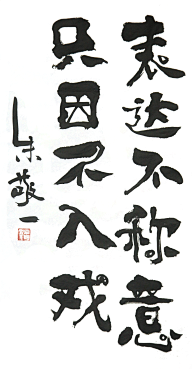 表达不称意
只因不入戏
朱敬一